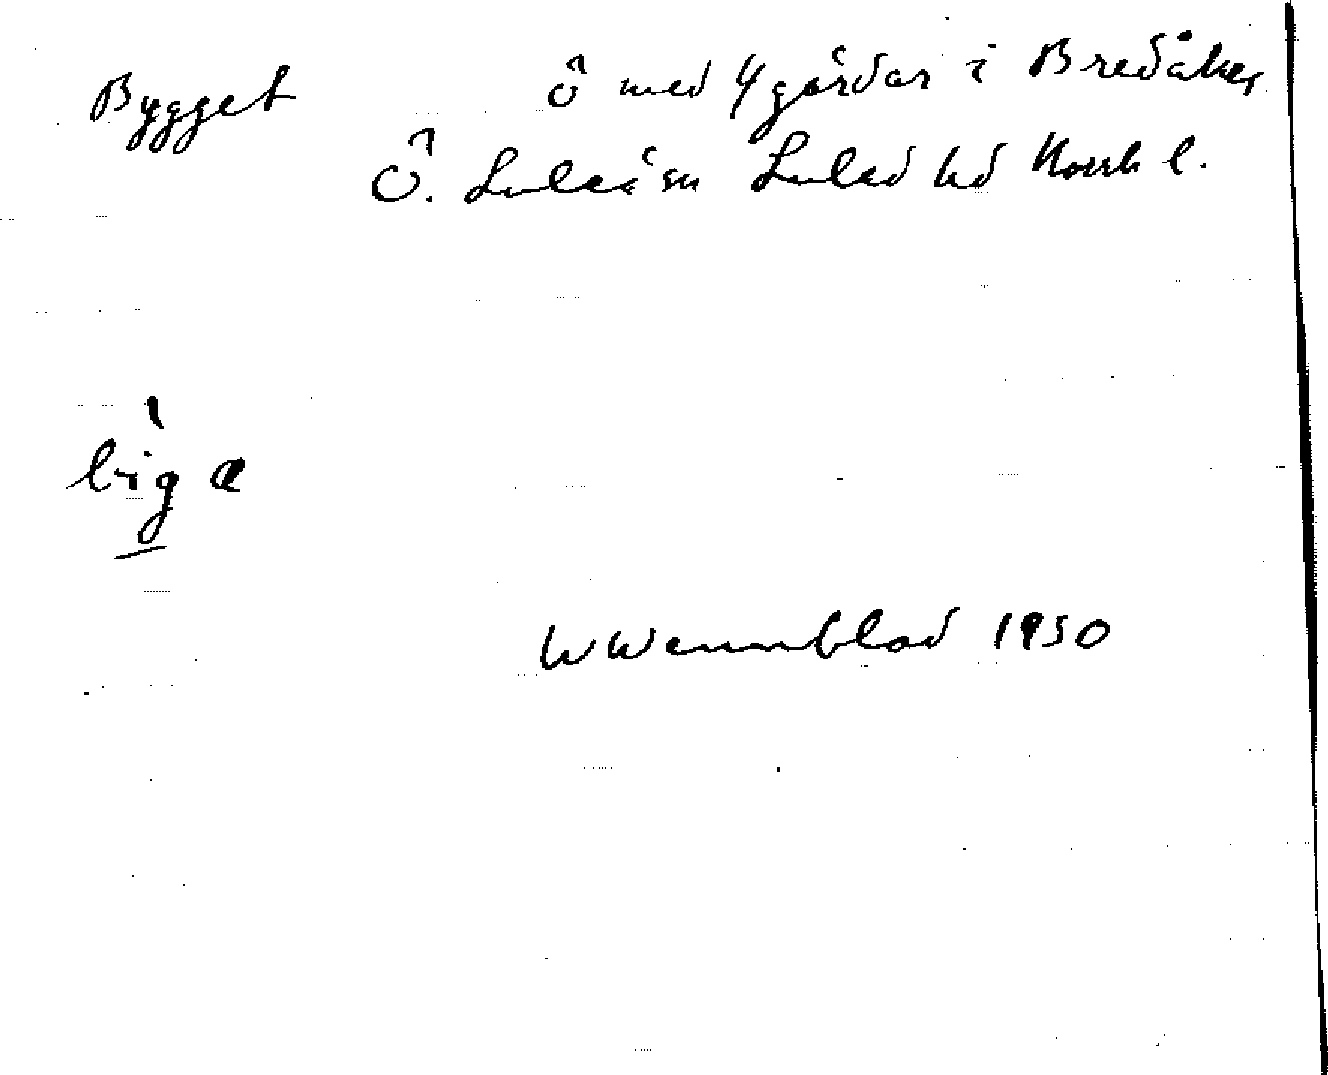 Bygget ö med 4 gårdar i Bredåker
Ö. Luleå sn Luleå hd Norrb l.
W Wennblad 1950